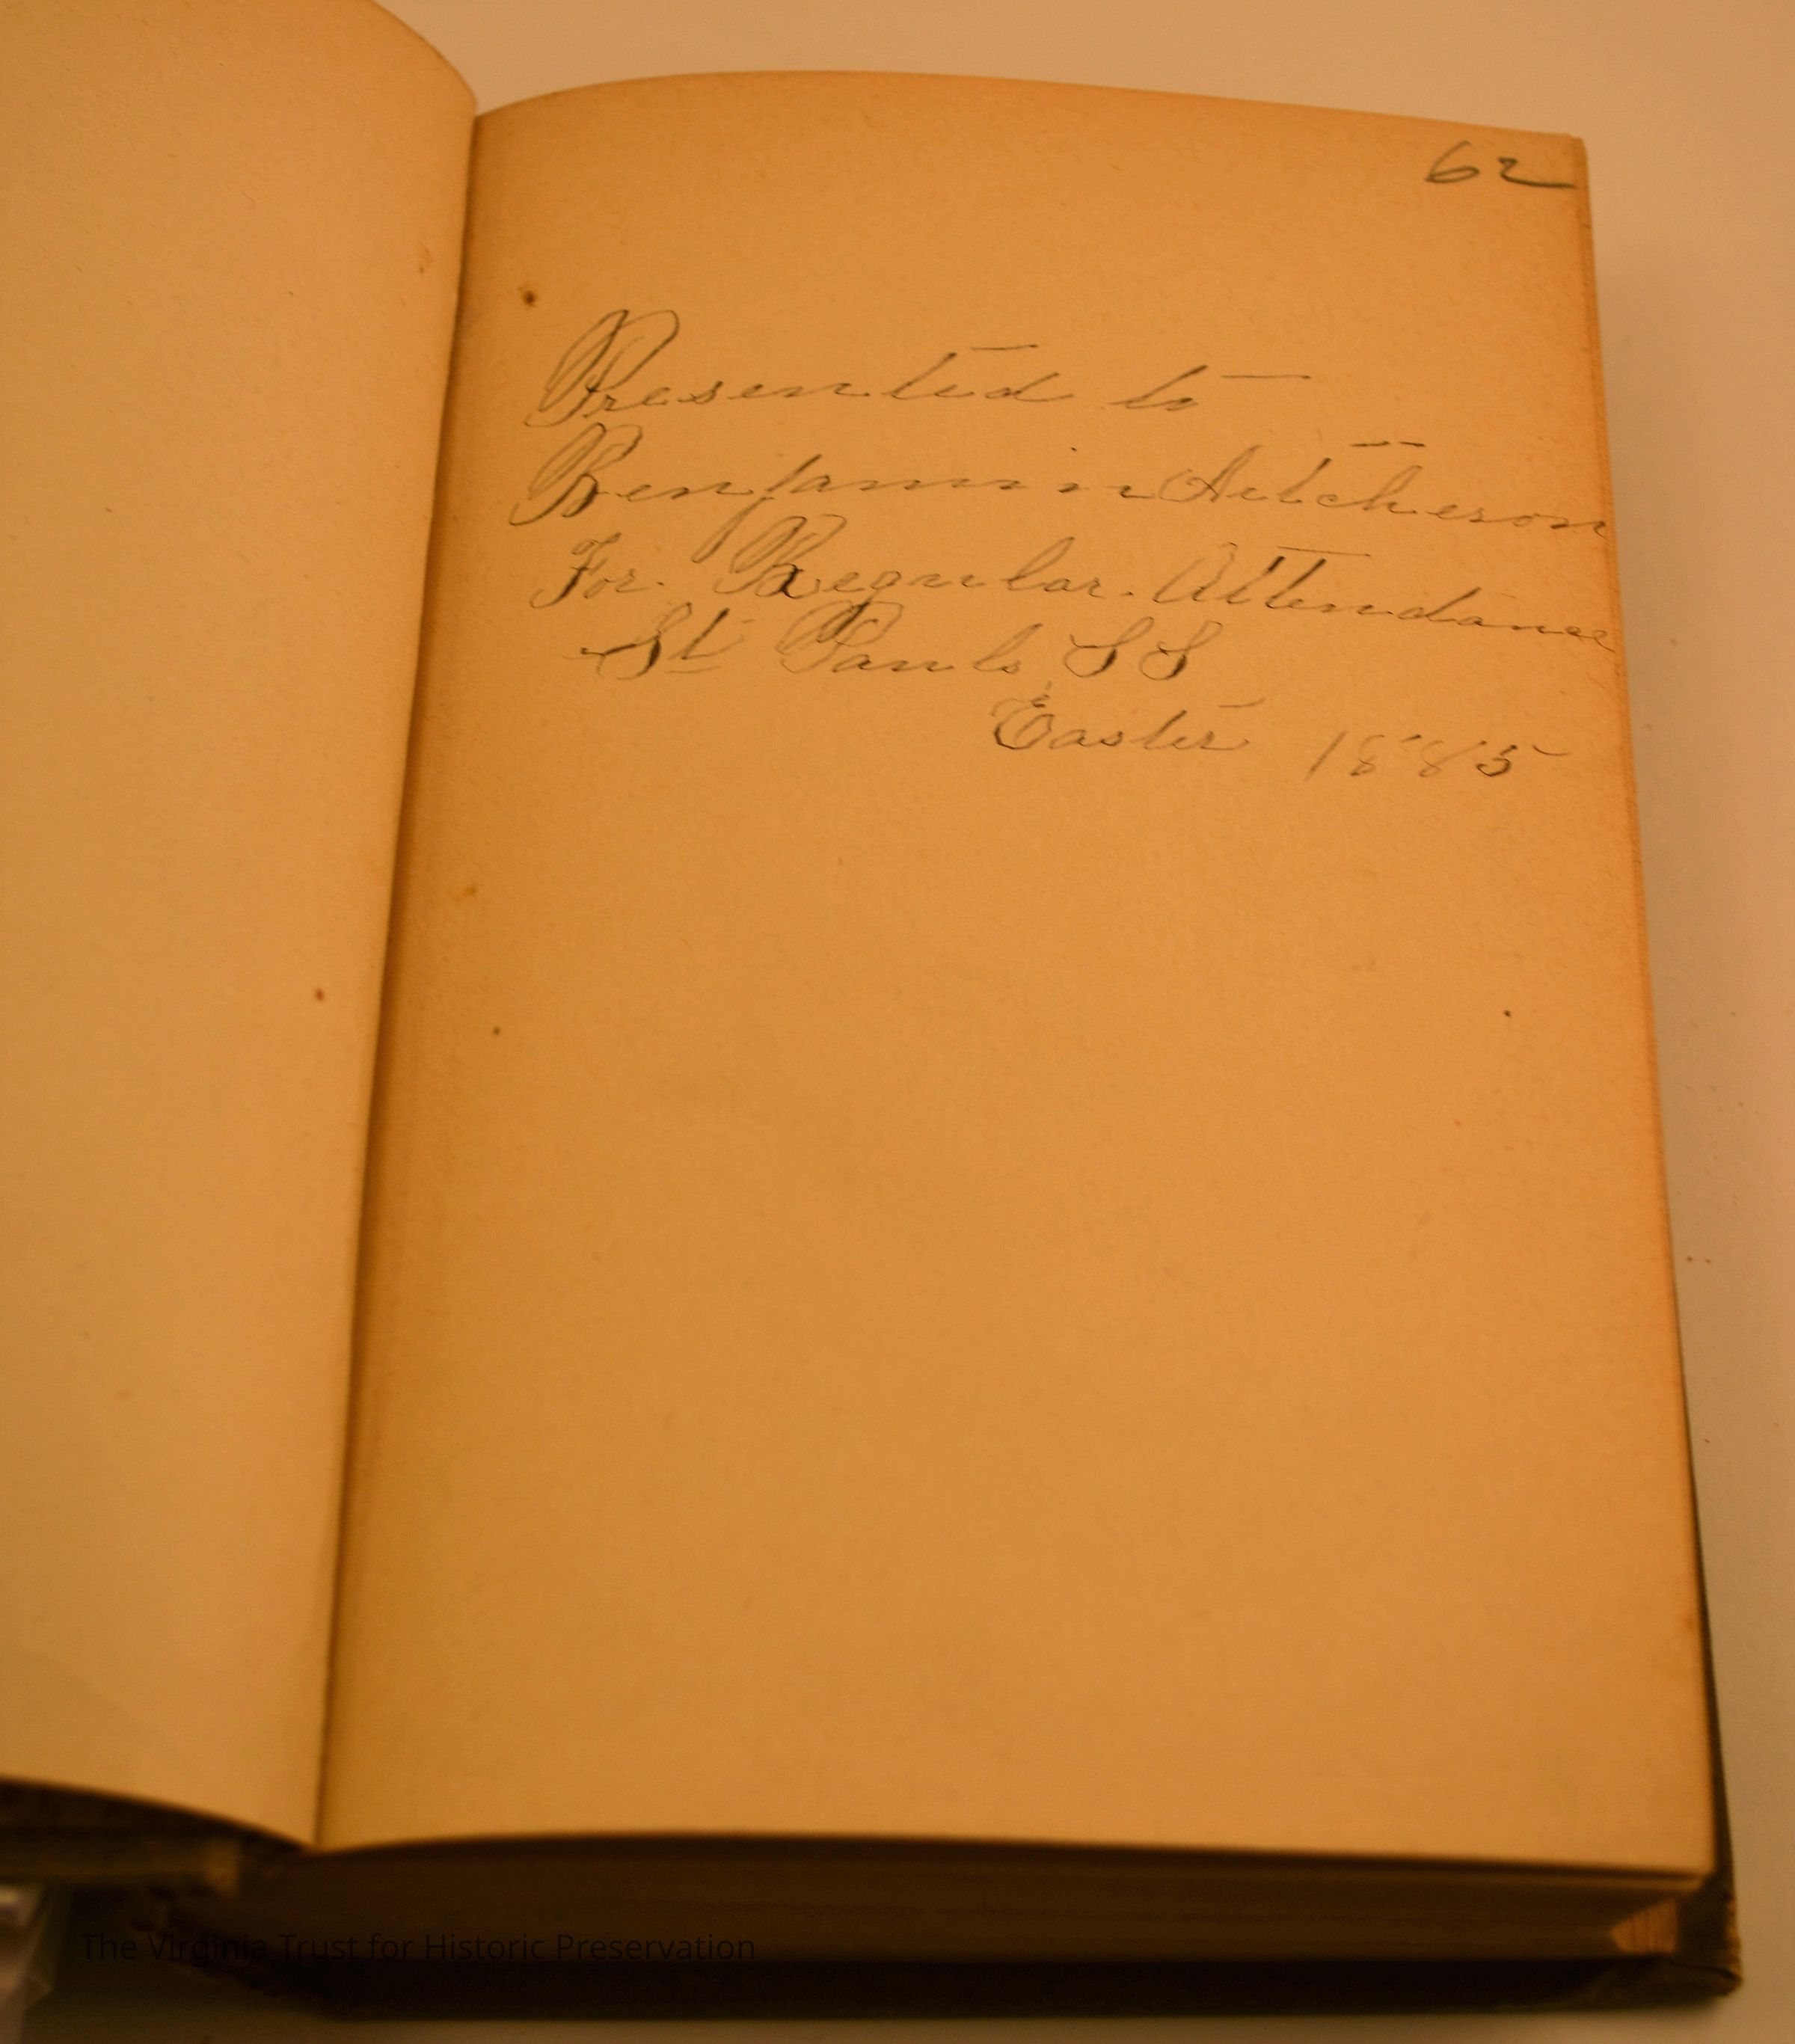 62
Presented to
Benjamin Aitcheson
For. Regular. Attendance
St Pauls SS
Easter 1885
The Virginia Trust for Historic Preservation